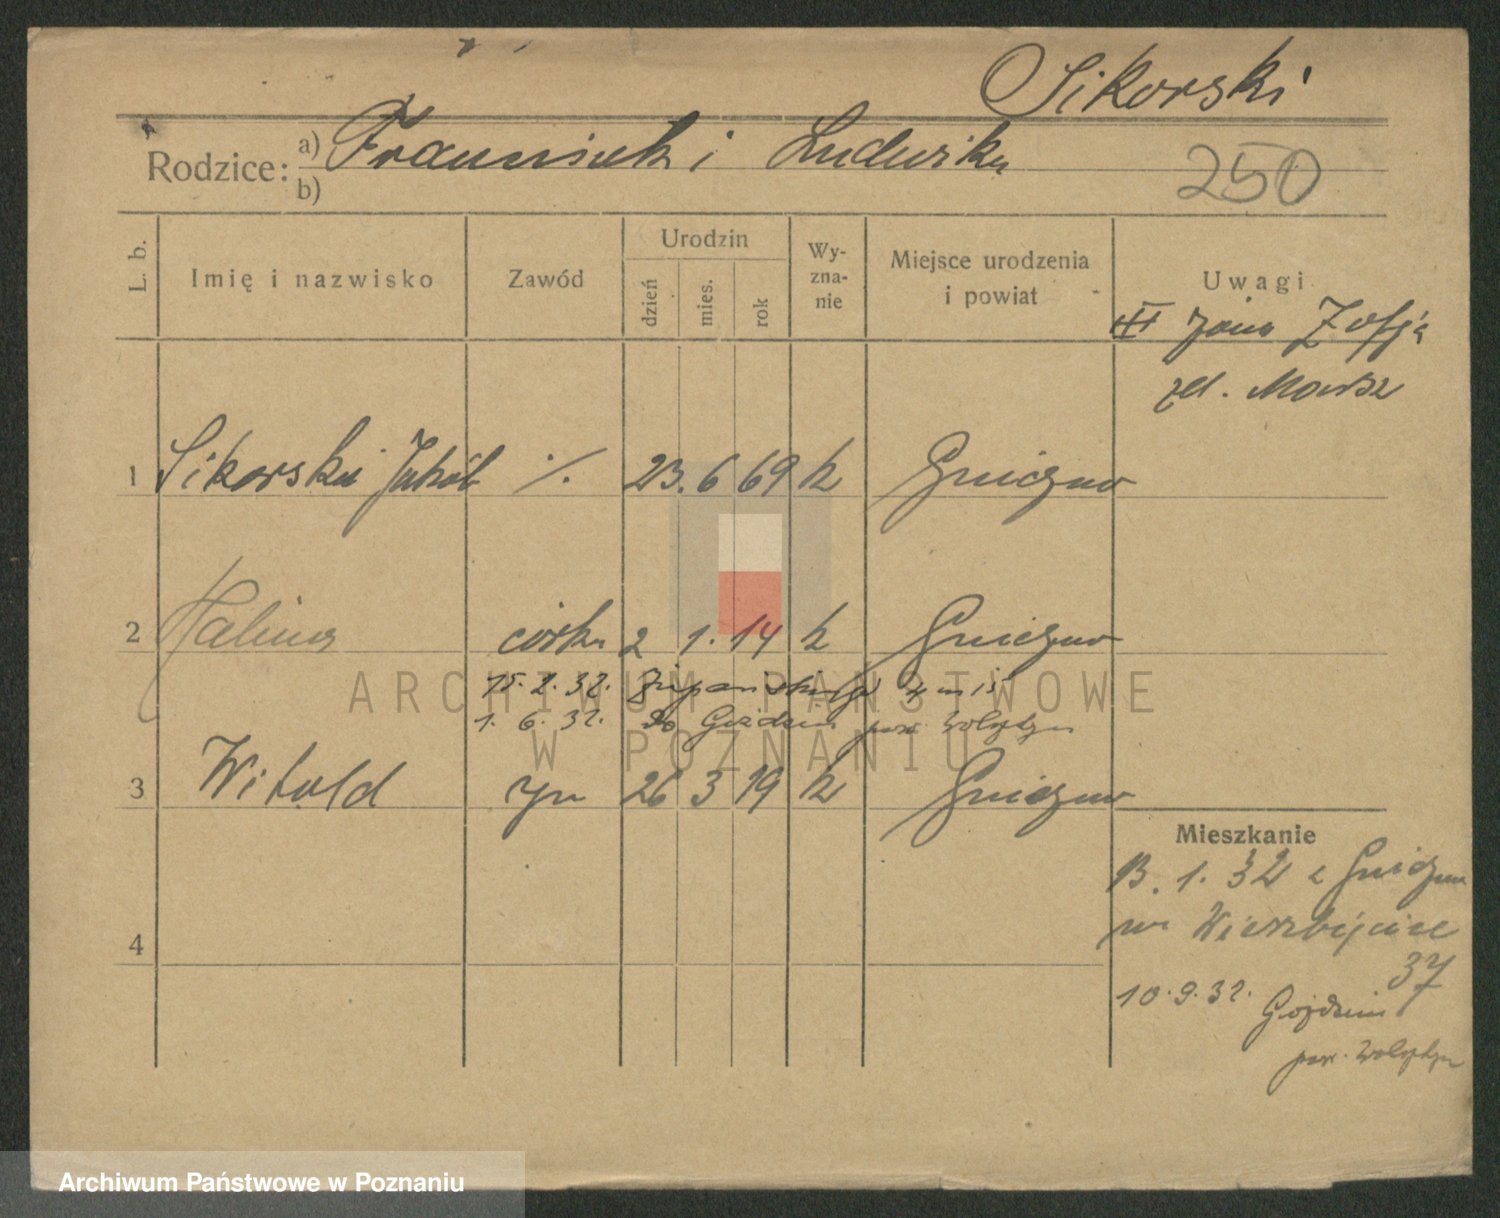 Sikorski
Rodzice: a) Franciszek i Ludwika
b)
250
L. b.
Imię i nazwisko
Zawód
Urodzin
dzień
mies.
rok
Wy-
zna-
nie
Miejsce urodzenia
i powiat
Uwagi
III żona Zofja
1 Sikorski Jakób ·/. 23. 6 69 k Gniezno
2 Halina córka 2 1. 14 k Gniezno
15. 2. 32.
1. 6. 32. do
3 Witold syn 26 3 19 k Gniezno
4
Mieszkanie
1. 32 z Gniezna
Wierzbięcice
37
10. 9. 32.
pow.
ARCHIWUM PAŃSTWOWE
W POZNANIU
Archiwum Państwowe w Poznaniu